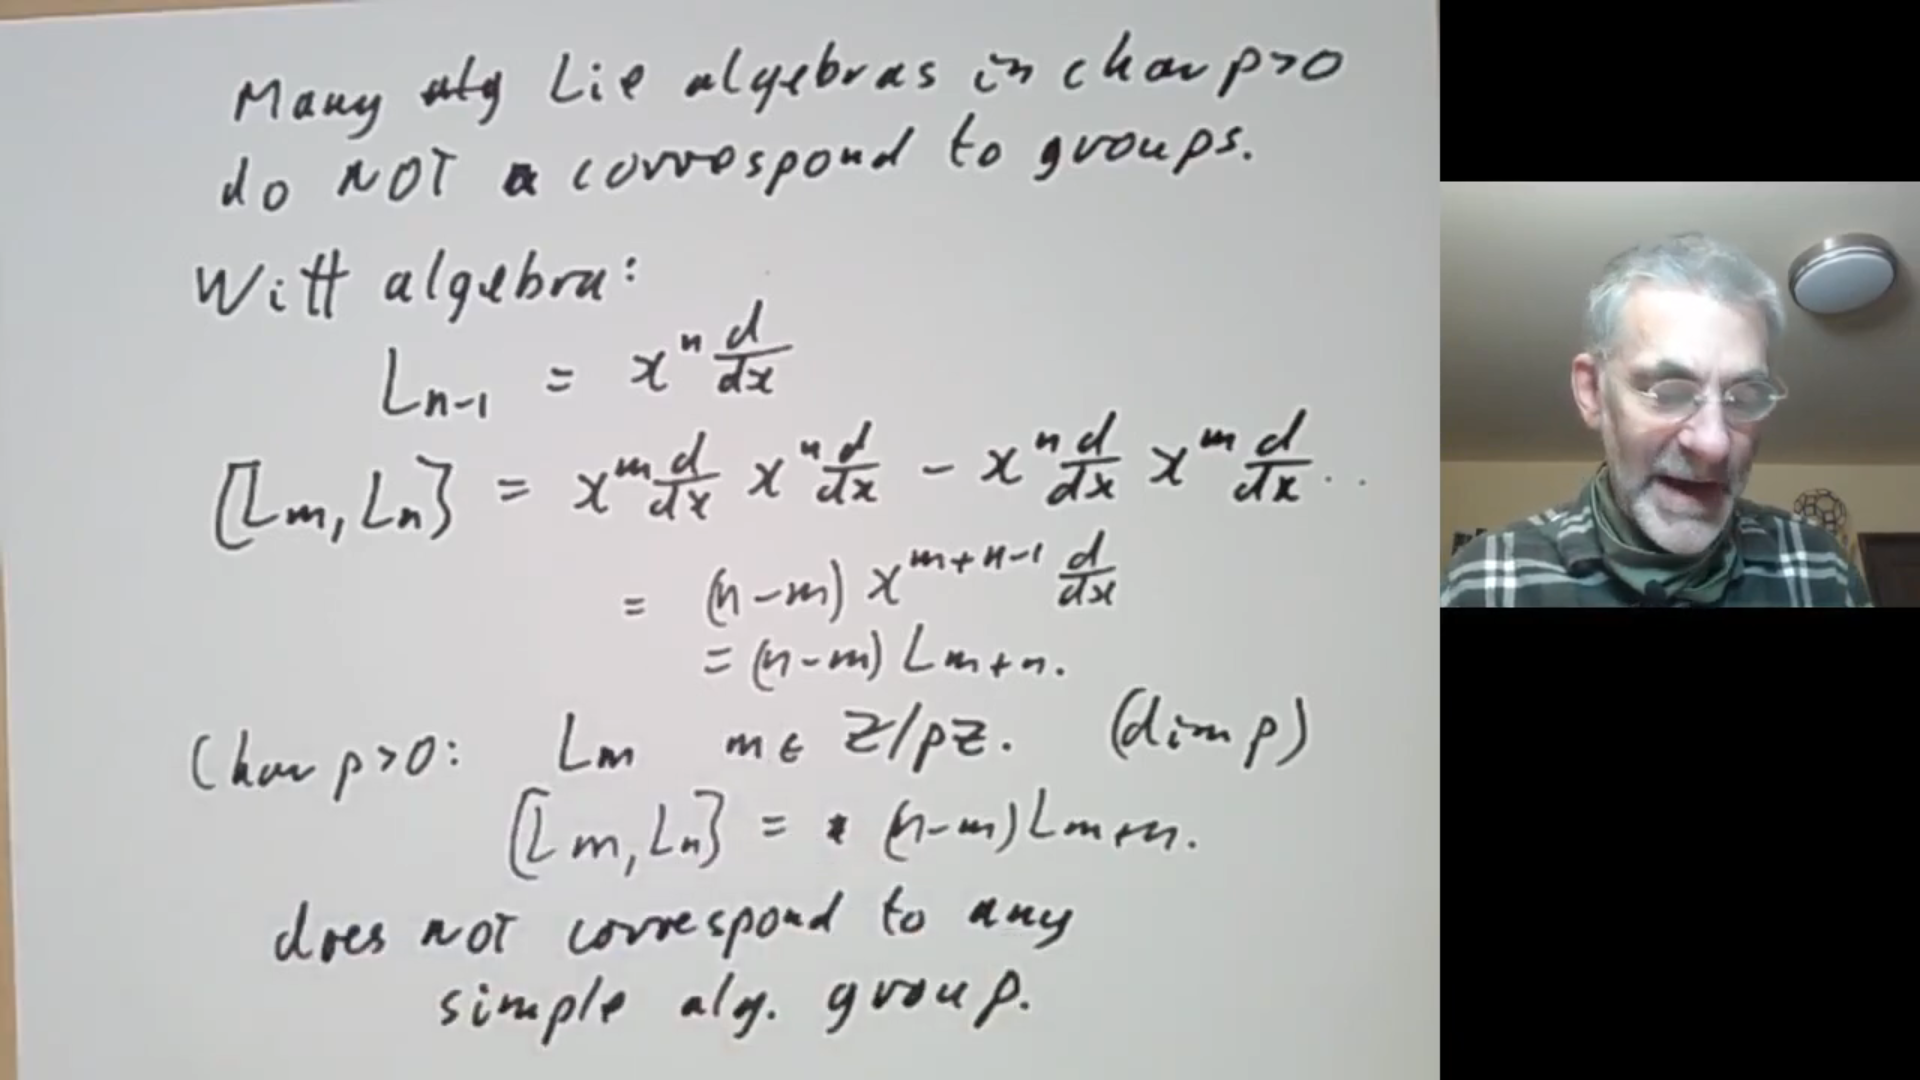 Many alg Lie algebras in char p>0
do NOT correspond to groups.
Witt algebra:
L_{n-1} = x^n d/dx
[L_m, L_n] = x^m d/dx x^n d/dx - x^n d/dx x^m d/dx ..
= (n-m) x^{m+n-1} d/dx
= (n-m) L_{m+n}.
Char p>0: L_m m ∈ Z/pZ. (dim p)
[L_m, L_n] = (n-m) L_{m+n}.
does NOT correspond to any
simple alg. group.